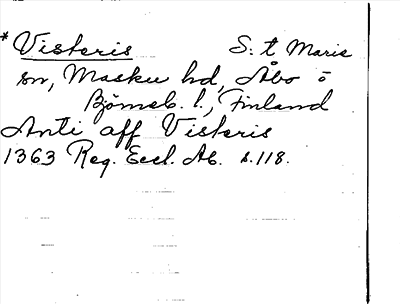 * Visteris S:t Marie
sn, Masku hd, Åbo o
Björneb. l., Finland
Anti aff Visteris
1363 Reg. Eccl. Ab. s. 118.